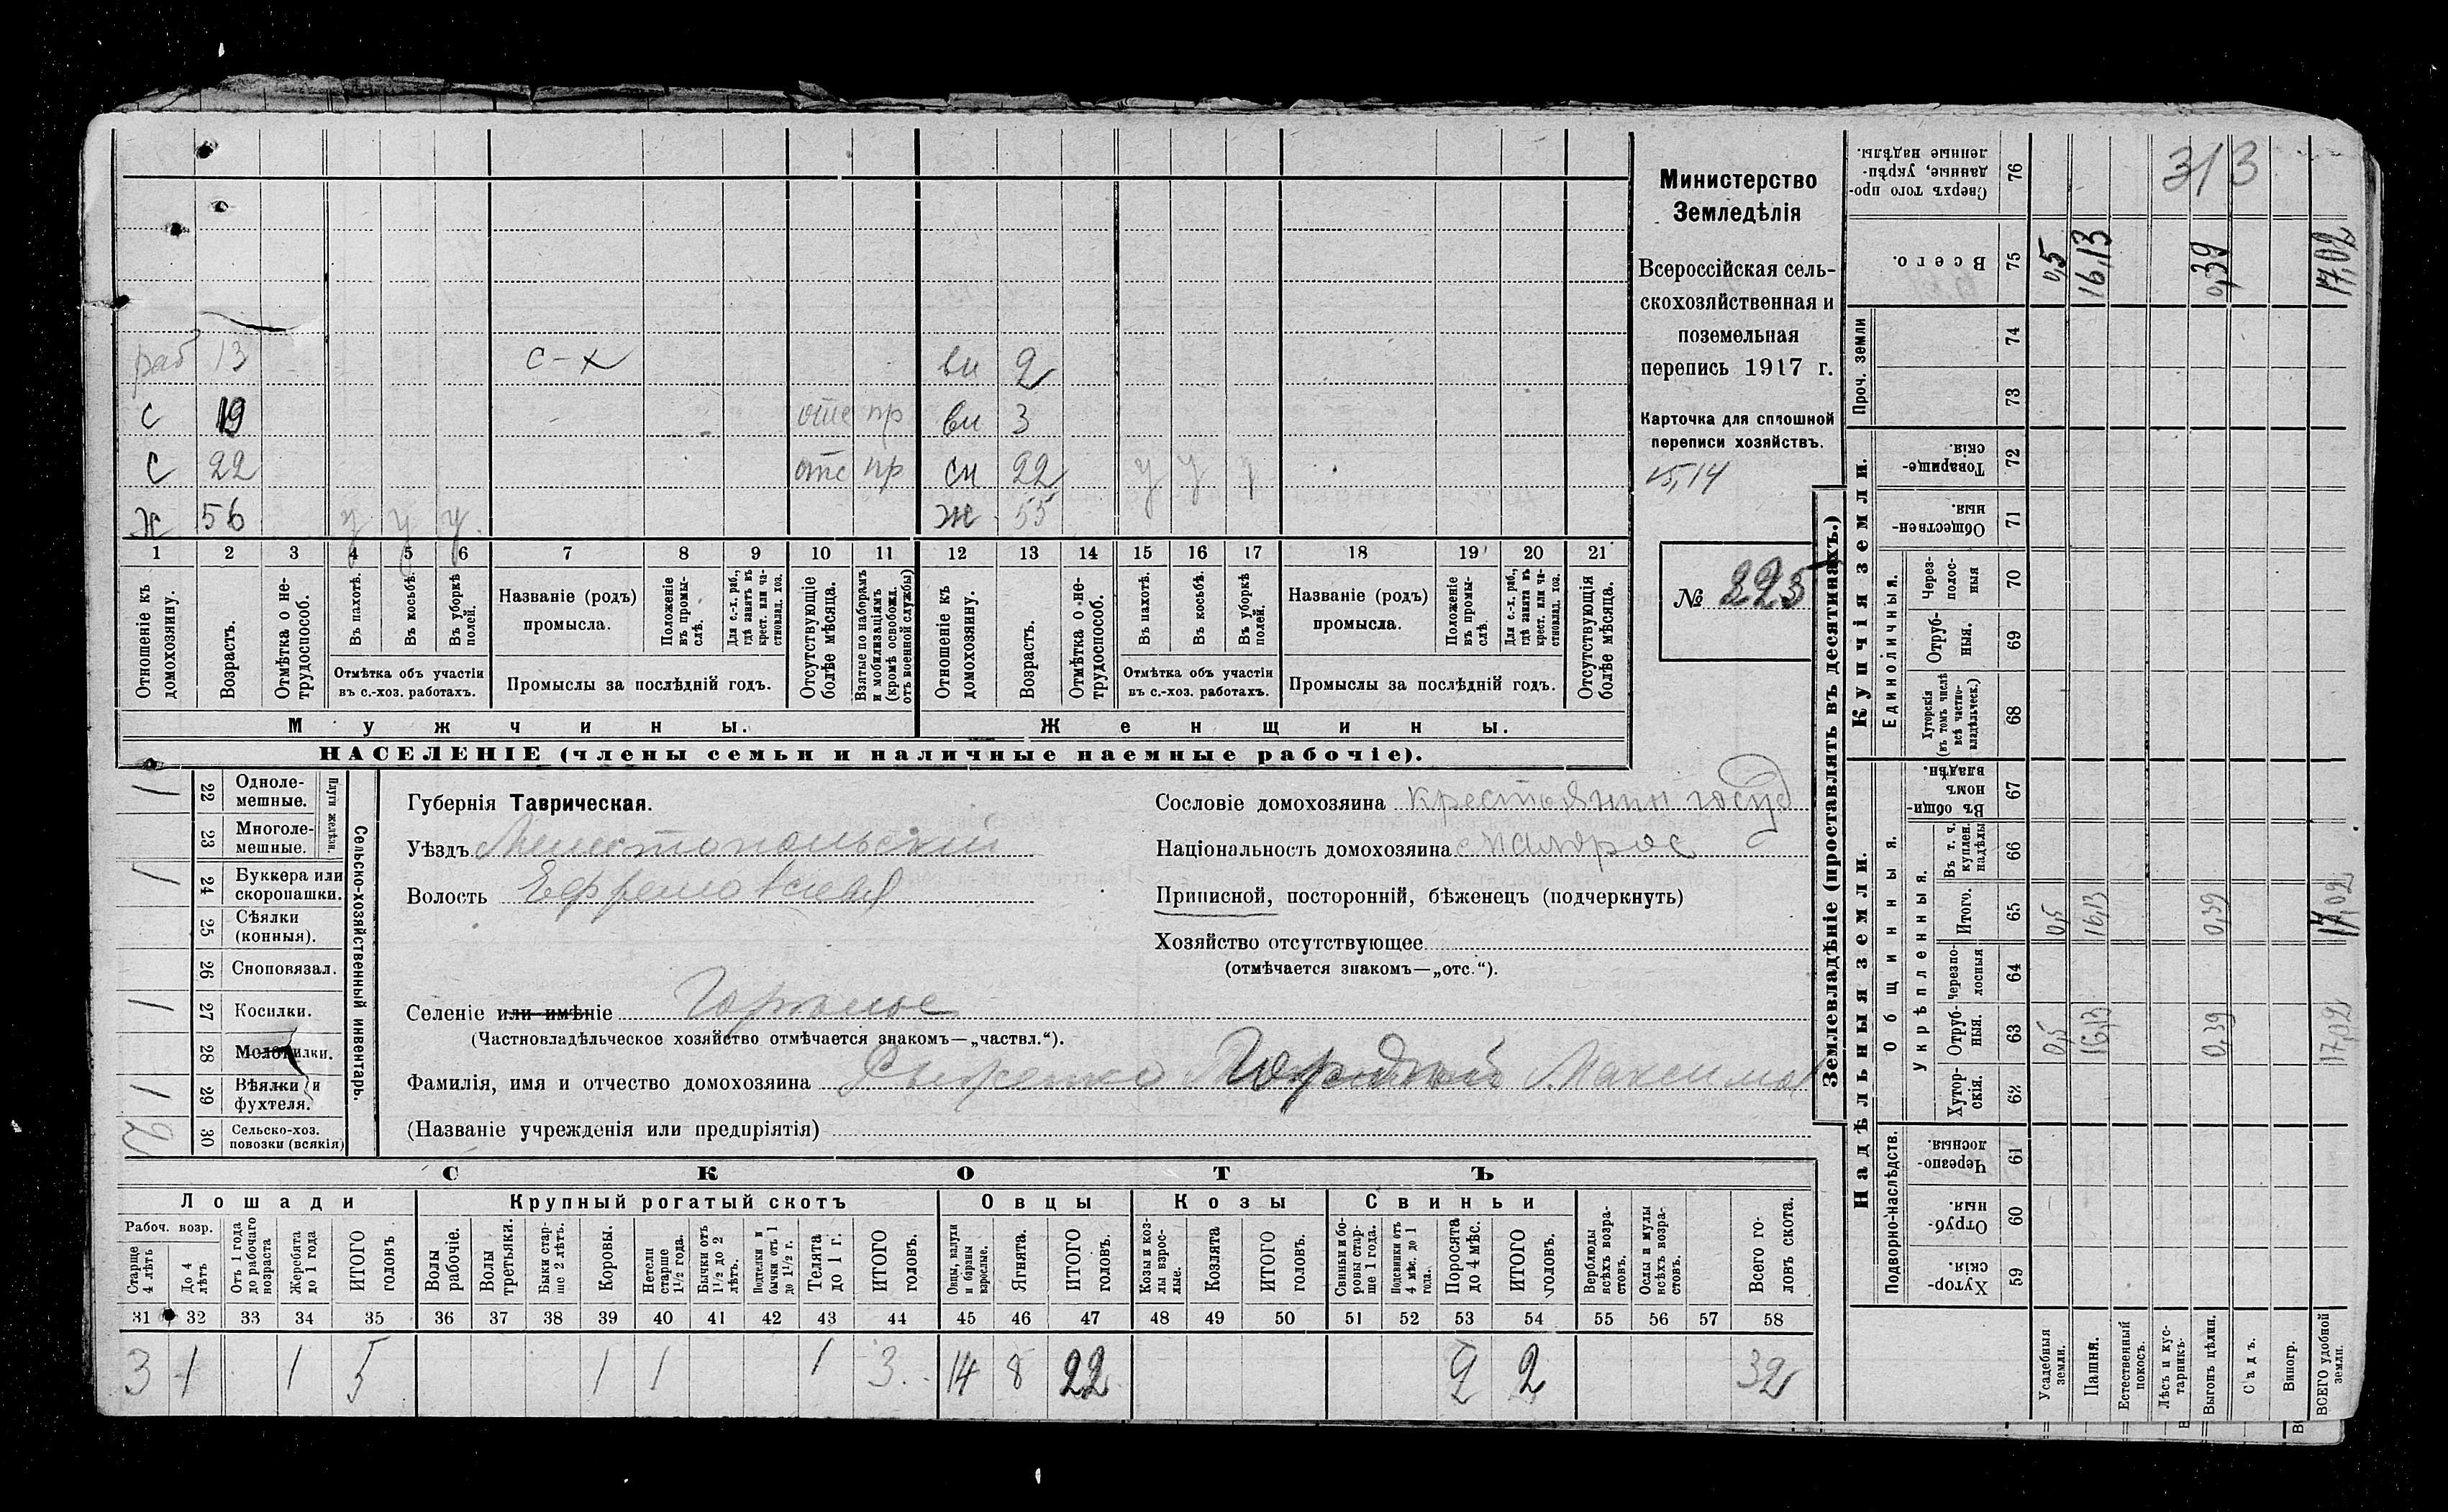 313
Министерство
Земледѣлія
Всероссійская сель-
скохозяйственная и
поземельная
перепись 1917 г.
Карточка для сплошной
переписи хозяйствъ.
15,14
№ 223
раб 13 с-х вн 2
с 19 отс пр вн 3
с 22 отс пр сн 22 у у у
х 56 у у у ж 55
1 2 3 4 5 6 7 8 9 10 11 12 13 14 15 16 17 18 19 20 21
Отношеніе къ домохозяину.
Возрастъ.
Отмѣтка о не-трудоспособ.
Въ пахотѣ.
Въ косьбѣ.
Въ уборкѣ полей.
Отмѣтка объ участіи
въ с.-хоз. работахъ.
Названіе (родъ)
промысла.
Положеніе въ промы-слѣ.
Для с.-х. раб., гдѣ занятъ въ крест. или ча-стновлад. хоз.
Промыслы за послѣдній годъ.
Отсутствующіе болѣе мѣсяца.
Взятые по наборамъ и мобилизаціямъ (кромѣ освобожд. отъ военной службы)
Отношеніе къ домохозяину.
Возрастъ.
Отмѣтка о не-трудоспособ.
Въ пахотѣ.
Въ косьбѣ.
Въ уборкѣ полей.
Отмѣтка объ участіи
въ с.-хоз. работахъ.
Названіе (родъ)
промысла.
Положеніе въ промы-слѣ.
Для с.-х. раб., гдѣ занята въ крест. или ча-стновлад. хоз.
Промыслы за послѣдній годъ.
Отсутствующія болѣе мѣсяца.
Мужчины.
Женщины.
НАСЕЛЕНІЕ (члены семьи и наличные наемные рабочіе).
1 22 Одноле-мешные.
23 Многоле-мешные.
Плуги желѣзн.
1 24 Буккера или скоропашки.
25 Сѣялки (конныя).
26 Сноповязал.
1 27 Косилки.
28 Молотилки.
1 29 Вѣялки и фухтеля.
30 Сельско-хоз. повозки (всякія)
Сельско-хозяйственный инвентарь.
Губернія Таврическая.
Уѣздъ Мелитопольскій
Волость Ефремовская
Селеніе или имѣніе Горѣлое
(Частновладѣльческое хозяйство отмѣчается знакомъ—„частвл.“).
Фамилія, имя и отчество домохозяина Максимов
(Названіе учрежденія или предпріятія)
Сословіе домохозяина крестьянин госуд
Національность домохозяина малорос
Приписной, посторонній, бѣженецъ (подчеркнуть)
Хозяйство отсутствующее
(отмѣчается знакомъ—„отс.“).
СКОТЪ
Лошади
Крупный рогатый скотъ
Овцы
Козы
Свиньи
Рабоч. возр.
Старше 4 лѣтъ
До 4 лѣтъ
Отъ 1 года до рабочаго возраста
Жеребята до 1 года
ИТОГО головъ
Волы рабочіе.
Волы третьяки.
Быки стар-ше 2 лѣтъ.
Коровы.
Нетели старше 1 1/2 года.
Бычки отъ 1 1/2 до 2 лѣтъ.
Подтелки и бычки отъ 1 до 1 1/2 г.
Телята до 1 г.
ИТОГО головъ.
Овцы, валухи и бараны взрослые.
Ягнята.
ИТОГО головъ.
Козы и коз-лы взрос-лые.
Козлята
ИТОГО головъ.
Свиньи и бо-ровы стар-ше 1 года.
Подсвинки отъ 4 мѣс. до 1 года.
Поросята до 4 мѣс.
ИТОГО головъ.
Верблюды всѣхъ возра-стовъ.
Ослы и мулы всѣхъ возра-стовъ.
Всего го-ловъ скота.
31 32 33 34 35 36 37 38 39 40 41 42 43 44 45 46 47 48 49 50 51 52 53 54 55 56 57 58
3 1 1 5 1 1 1 3 14 8 22 2 2 32
Землевладѣніе (проставлять въ десятинахъ.)
Надѣльныя земли.
Купчія земли.
Проч. земли
Подворно-наслѣдств.
Общинныя.
Укрѣпленныя.
Единоличныя.
Сверхъ того про-данные, укрѣп-ленные надѣлы. 76
Всего. 75 0,5 16,13 0,39 17,02
74
73
Товарище-скія. 72
Обществен-ныя. 71
Через-полос-ныя 70
Отруб-ныя. 69
Хуторскія (въ томъ числѣ всѣ частно-владѣльческ.) 68
Въ общи-номъ владѣн. 67
Въ т. ч. куплен. надѣлы 66
Итого. 65 0,5 16,13 0,39 17,02
Черезпо-лосныя 64
Отруб-ныя. 63 0,5 16,13 0,39 17,02
Хутор-скія. 62
Черезпо-лосныя 61
Отруб-ныя. 60
Хутор-скія. 59
Усадебныя земли.
Пашня.
Естественный покосъ.
Лѣсъ и кус-тарникъ.
Выгонъ цѣлин.
Садъ.
Виногр.
ВСЕГО удобной земли.